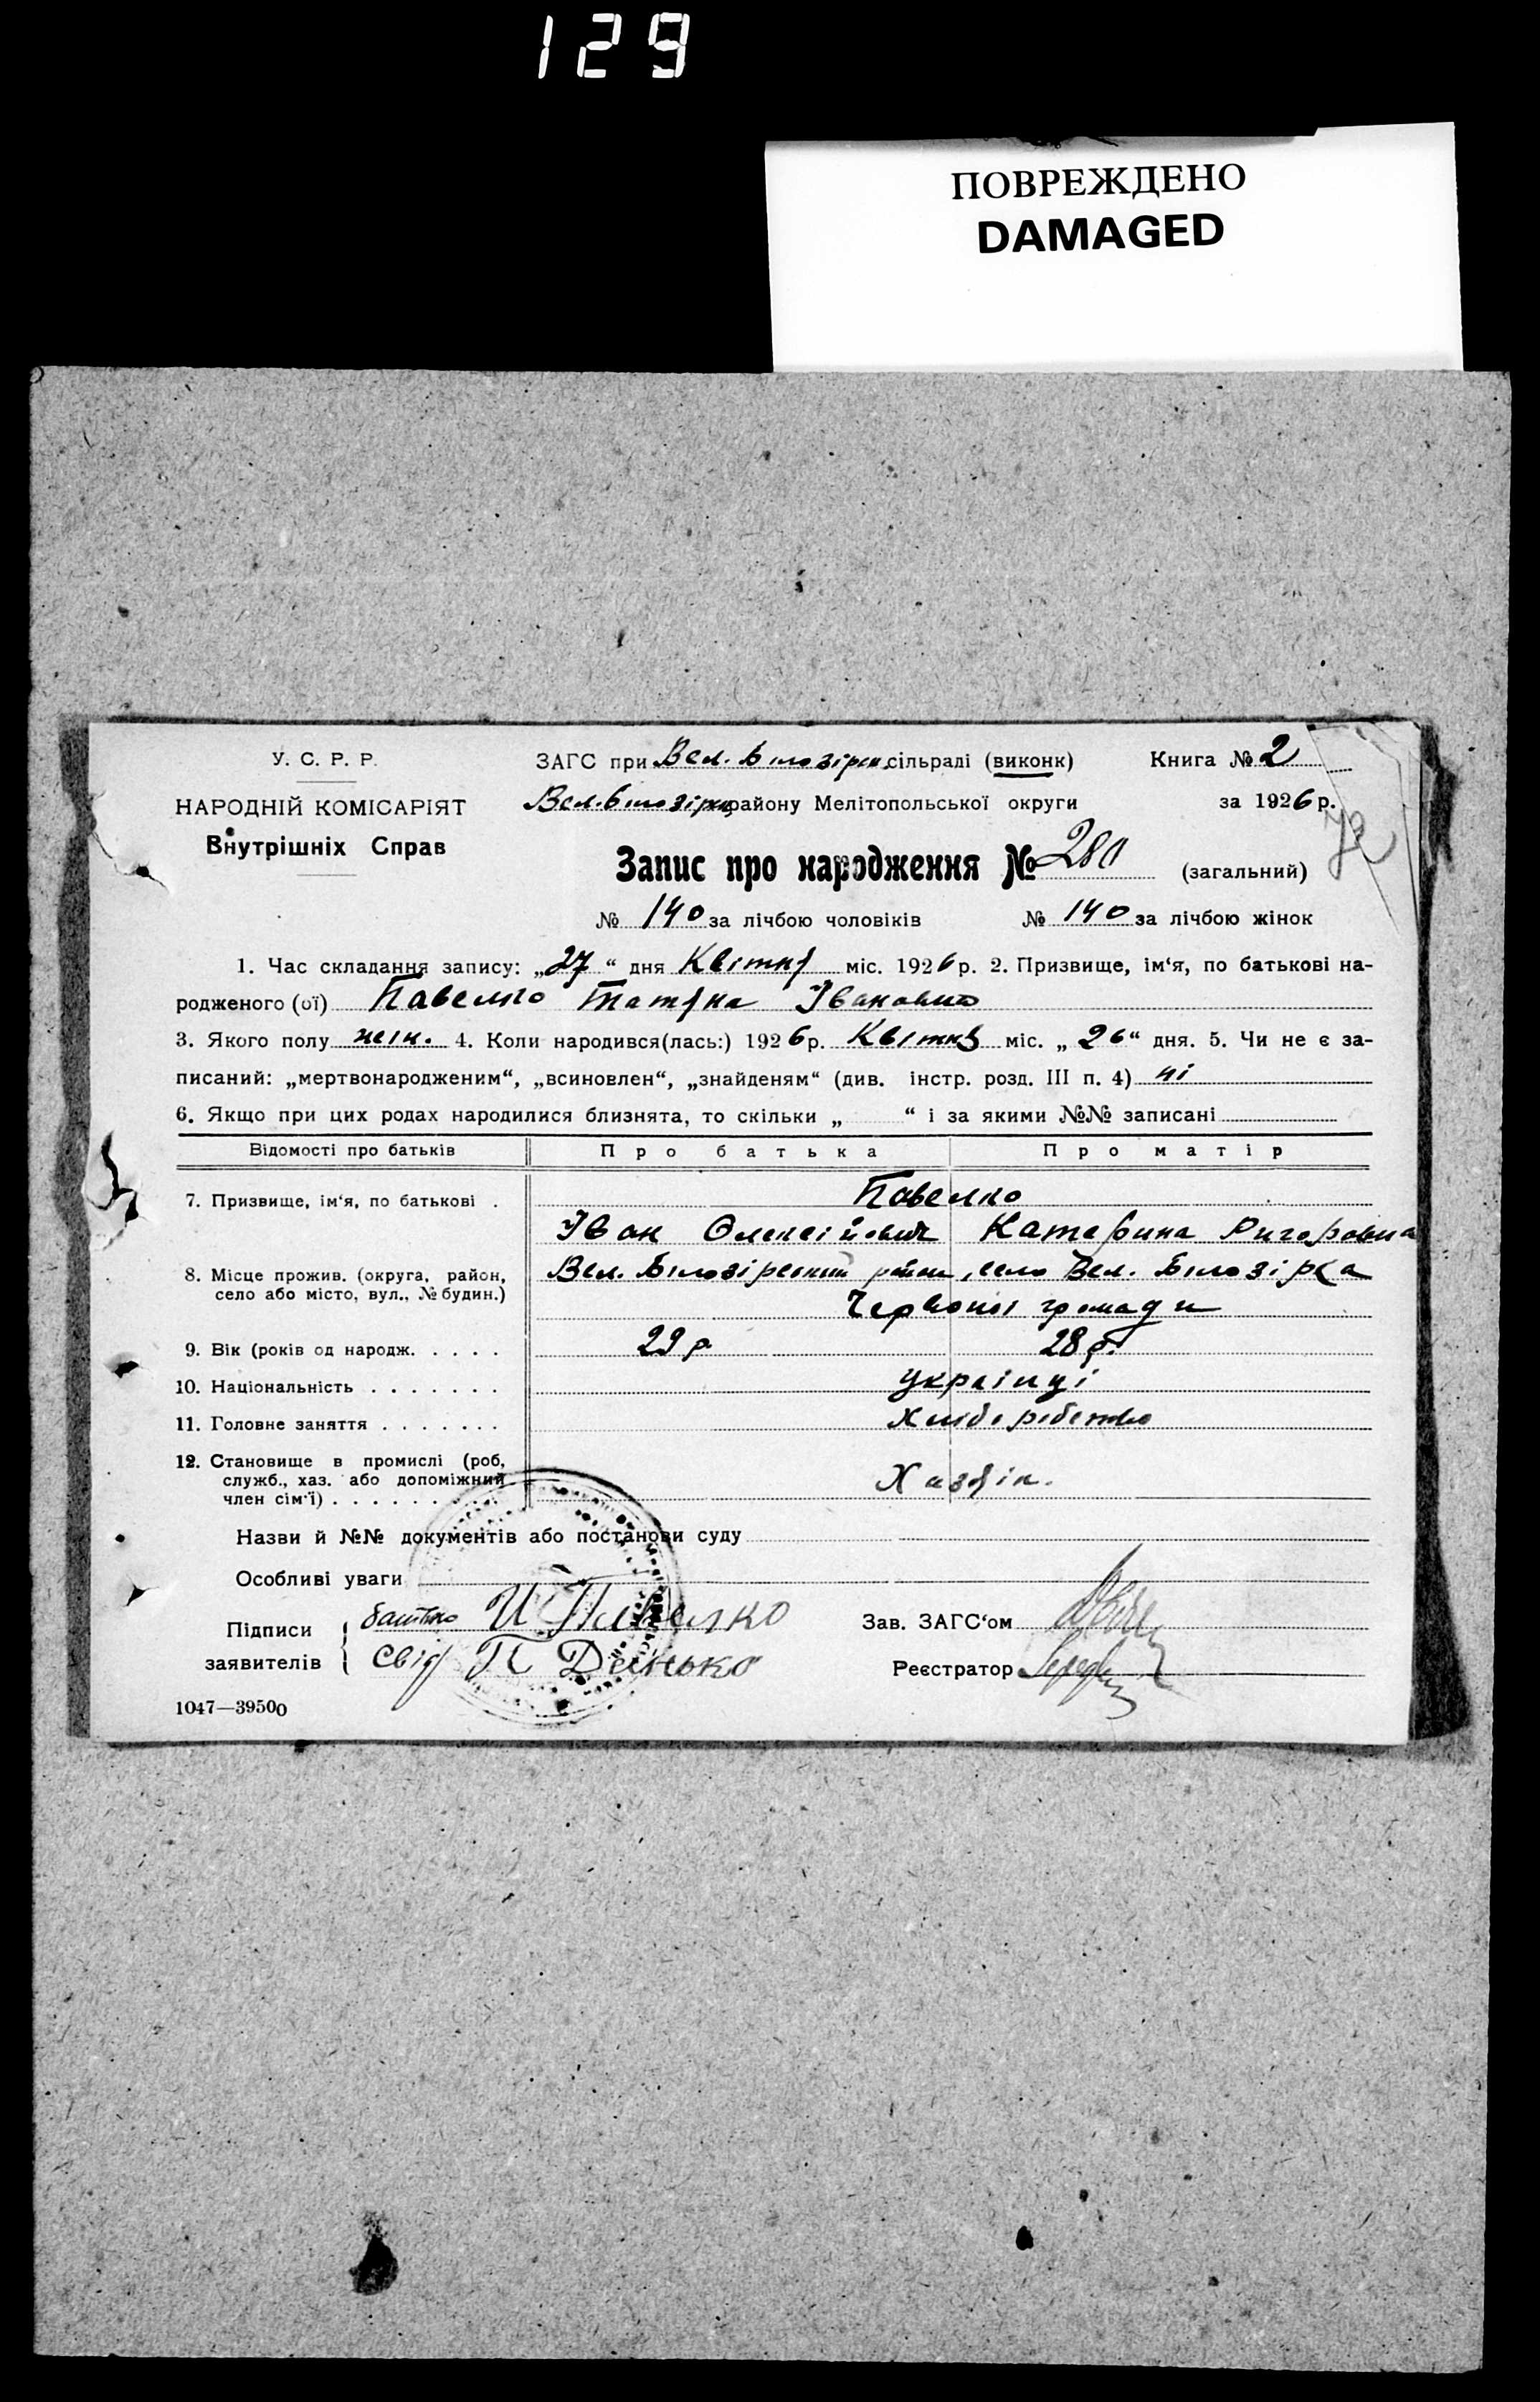 129
ПОВРЕЖДЕНО
DAMAGED
У. С. Р. Р.
НАРОДНІЙ КОМІСАРІЯТ
Внутрішніх Справ
ЗАГС при Вел. Білозірск. сільраді (виконк)
Книга № 2
Вел. Білозірск. району Мелітопольської округи
за 1926 р.
72
Запис про народження № 280 (загальний)
№ 140 за лічбою чоловіків № 140 за лічбою жінок
1. Час складання запису: „27“ дня Квітня міс. 1926 р. 2. Призвище, ім‘я, по батькові на-
родженого (ої) Павелко Татяна Івановна
3. Якого полу жін. 4. Коли народився(лась:) 1926 р. Квітня міс. „26“ дня. 5. Чи не є за-
писаний: „мертвонародженим“, „всиновлен“, „знайденям“ (див. інстр. розд. III п. 4) ні
6. Якщо при цих родах народилися близнята, то скільки „ “ і за якими №№ записані
Відомості про батьків Про батька Про матір
7. Призвище, ім‘я, по батькові . Павелко
Іван Олексійович Катерина Григоровна
8. Місце прожив. (округа, район, село або місто, вул., № будин.) Вел. Білозірский район, село Вел. Білозірка
Червоної громади
9. Вік (років од народж. . . . . 29 р. 28 р.
10. Національність . . . . . . . українці
11. Головне заняття . . . . . . . Хлiборобство
12. Становище в промислі (роб,
служб., хаз. або допоміжний
член сім‘ї) . . . . . . . Хазяін.
Назви й №№ документів або постанови суду
Особливі уваги
Підписи заявителів
батько И Павелко
свід П Денько
Зав. ЗАГС‘ом
Реєстратор
1047—39500